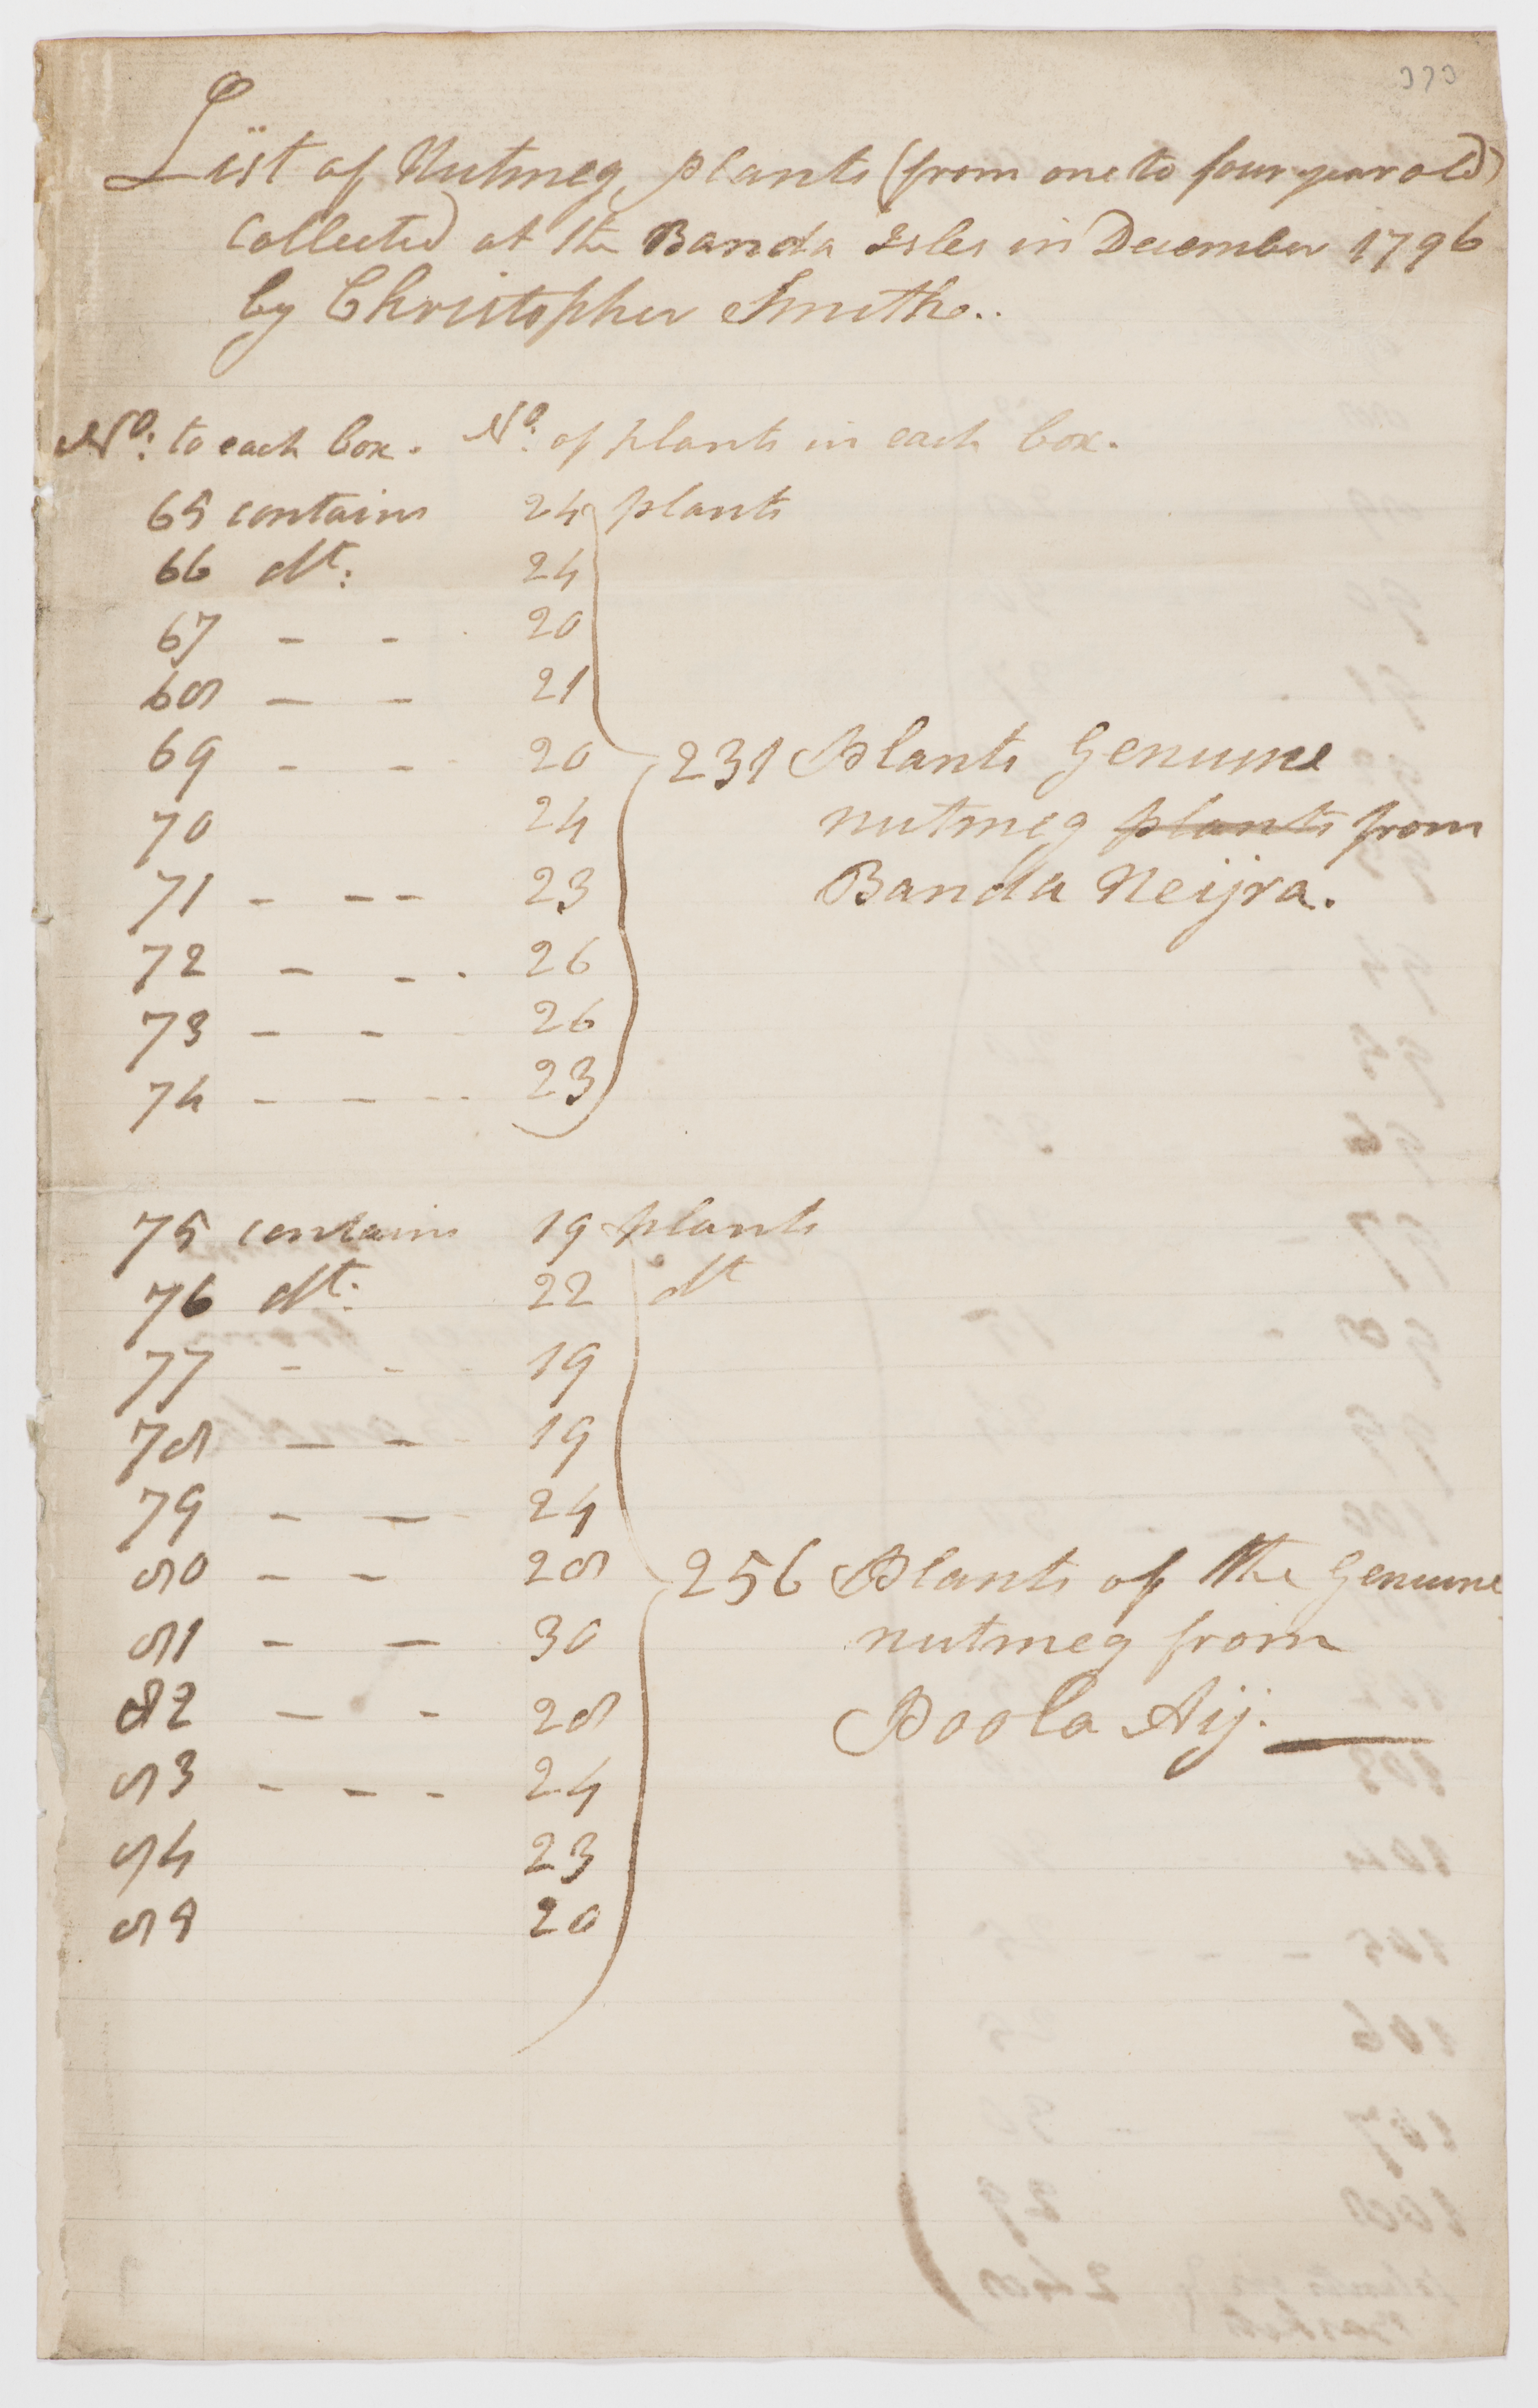 373
List of Nutmeg plants (from one to four year old)
Collected at the Banda Isles in December 1796
by Christopher Smith..
No: to each box. No: of plants in each box.
65 contains 24 plants
66 dt: 24
67 - - 20
68 - - 21
69 - - 20
231 Plants Genuine
70 24
nutmeg plants from
71 - -- 23
Banda Neijra.
72 - - . 26
73 - - 26
74 - - -- 23
75 contains 19 plants
76 dt: 22 dt
77 - - 19
78 - - 19
79 - - 24
80 - - 28
256 Plants of the Genuine
81 - - 30
nutmeg from
82 - - 28
Poola Aij.
83 - - - 24
84 23
85 20